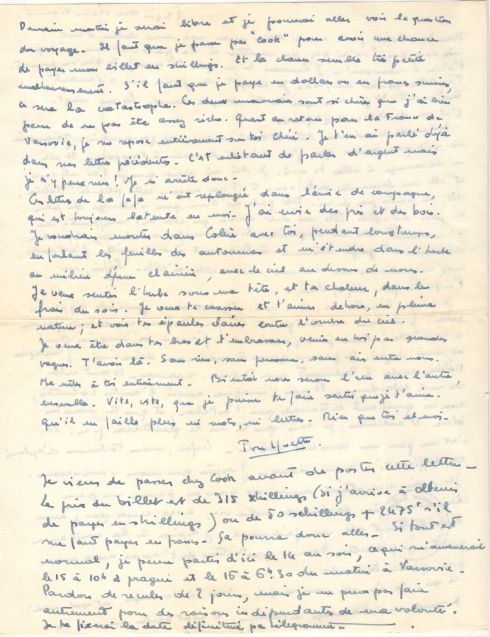 Demain matin je serai libre et je pourrai aller voir la question
du voyage. Il faut que je passe par "Cook" pour avoir une chance
de payer mon billet en shillings. Et la chance semble très petite
malheureusement. S'il faut que je paye en dollars ou en francs suisses,
ce sera la catastrophe. Ces deux monnaies sont si chères que j'ai bien
peur de ne pas être assez riche. Quant au retour pour la France de
Varsovie, je me repose entièrement sur toi chéri. Je t'en ai parlé déjà
dans mes lettres précédentes. C'est embêtant de parler d'argent mais
je n'y peux rien! Je m'arrête donc.
Ces lettres de la m'ont replongée dans l'envie de campagne,
qui est toujours latente en moi. J'ai envie des prés et des bois.
Je voudrais monter dans avec toi, pendant longtemps,
en foulant les feuilles des automnes et m'étendre dans l'herbe
au milieu d'une clairière, avec le ciel au dessus de nous.
Je veux sentir l'herbe sous ma tête, et ta chaleur, dans le
frais du soir. Je veux te caresser et t'aimer dehors, en pleine
nature; et voir tes épaules claires contre l'ombre du ciel.
Je veux être dans tes bras et t'embrasser, venir en toi par grandes
vagues. T'avoir là. Sans rien, sans personne, sans air entre nous.
Me mêler à toi entièrement. Bientôt nous serons l'un avec l'autre,
ensemble. Vite, vite, que je puisse te faire sentir que je t'aime.
qu'il ne faille plus ni mots, ni lettres. Rien que toi et moi.
Ton
Je viens de passer chez Cook avant de poster cette lettre –
Le prix du billet est de 315 shillings (si j'arrive à obtenir
de payer en shillings) ou de 50 schillings + 2475 s'il
me faut payer en francs. Ça pourra donc aller. Si tout est
normal, je peux partir d'ici le 14 au soir, ce qui m'amènerait
le 15 à 10h à prague et le 16 à 6h30 du matin à Varsovie.
Pardon de reculer de 2 jours, mais je ne peux pas faire
autrement pour des raisons indépendantes de ma volonté.
Je te fixerai la date définitive par télégramme –